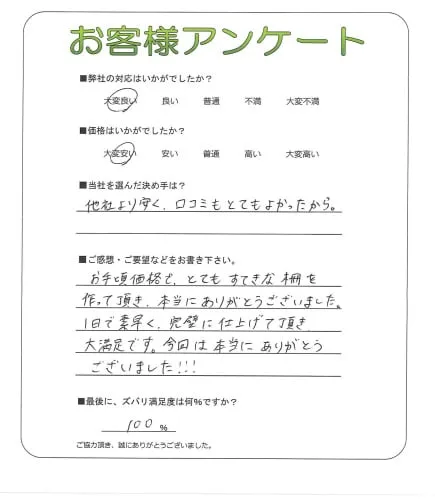 お客様アンケート
■弊社の対応はいかがでしたか？
大変良い 良い 普通 不満 大変不満
■価格はいかがでしたか？
大変安い 安い 普通 高い 大変高い
■当社を選んだ決め手は？
他社より安く、口コミもとてもよかったから。
■ご感想・ご要望などをお書き下さい。
お手頃価格で、とてもすてきな棚を
作って頂き、本当にありがとうございました。
1日で素早く、完璧に仕上げて頂き
大満足です。今回は本当にありがとう
ございました!!!
■最後に、ズバリ満足度は何%ですか？
100%
ご協力頂き、誠にありがとうございました。